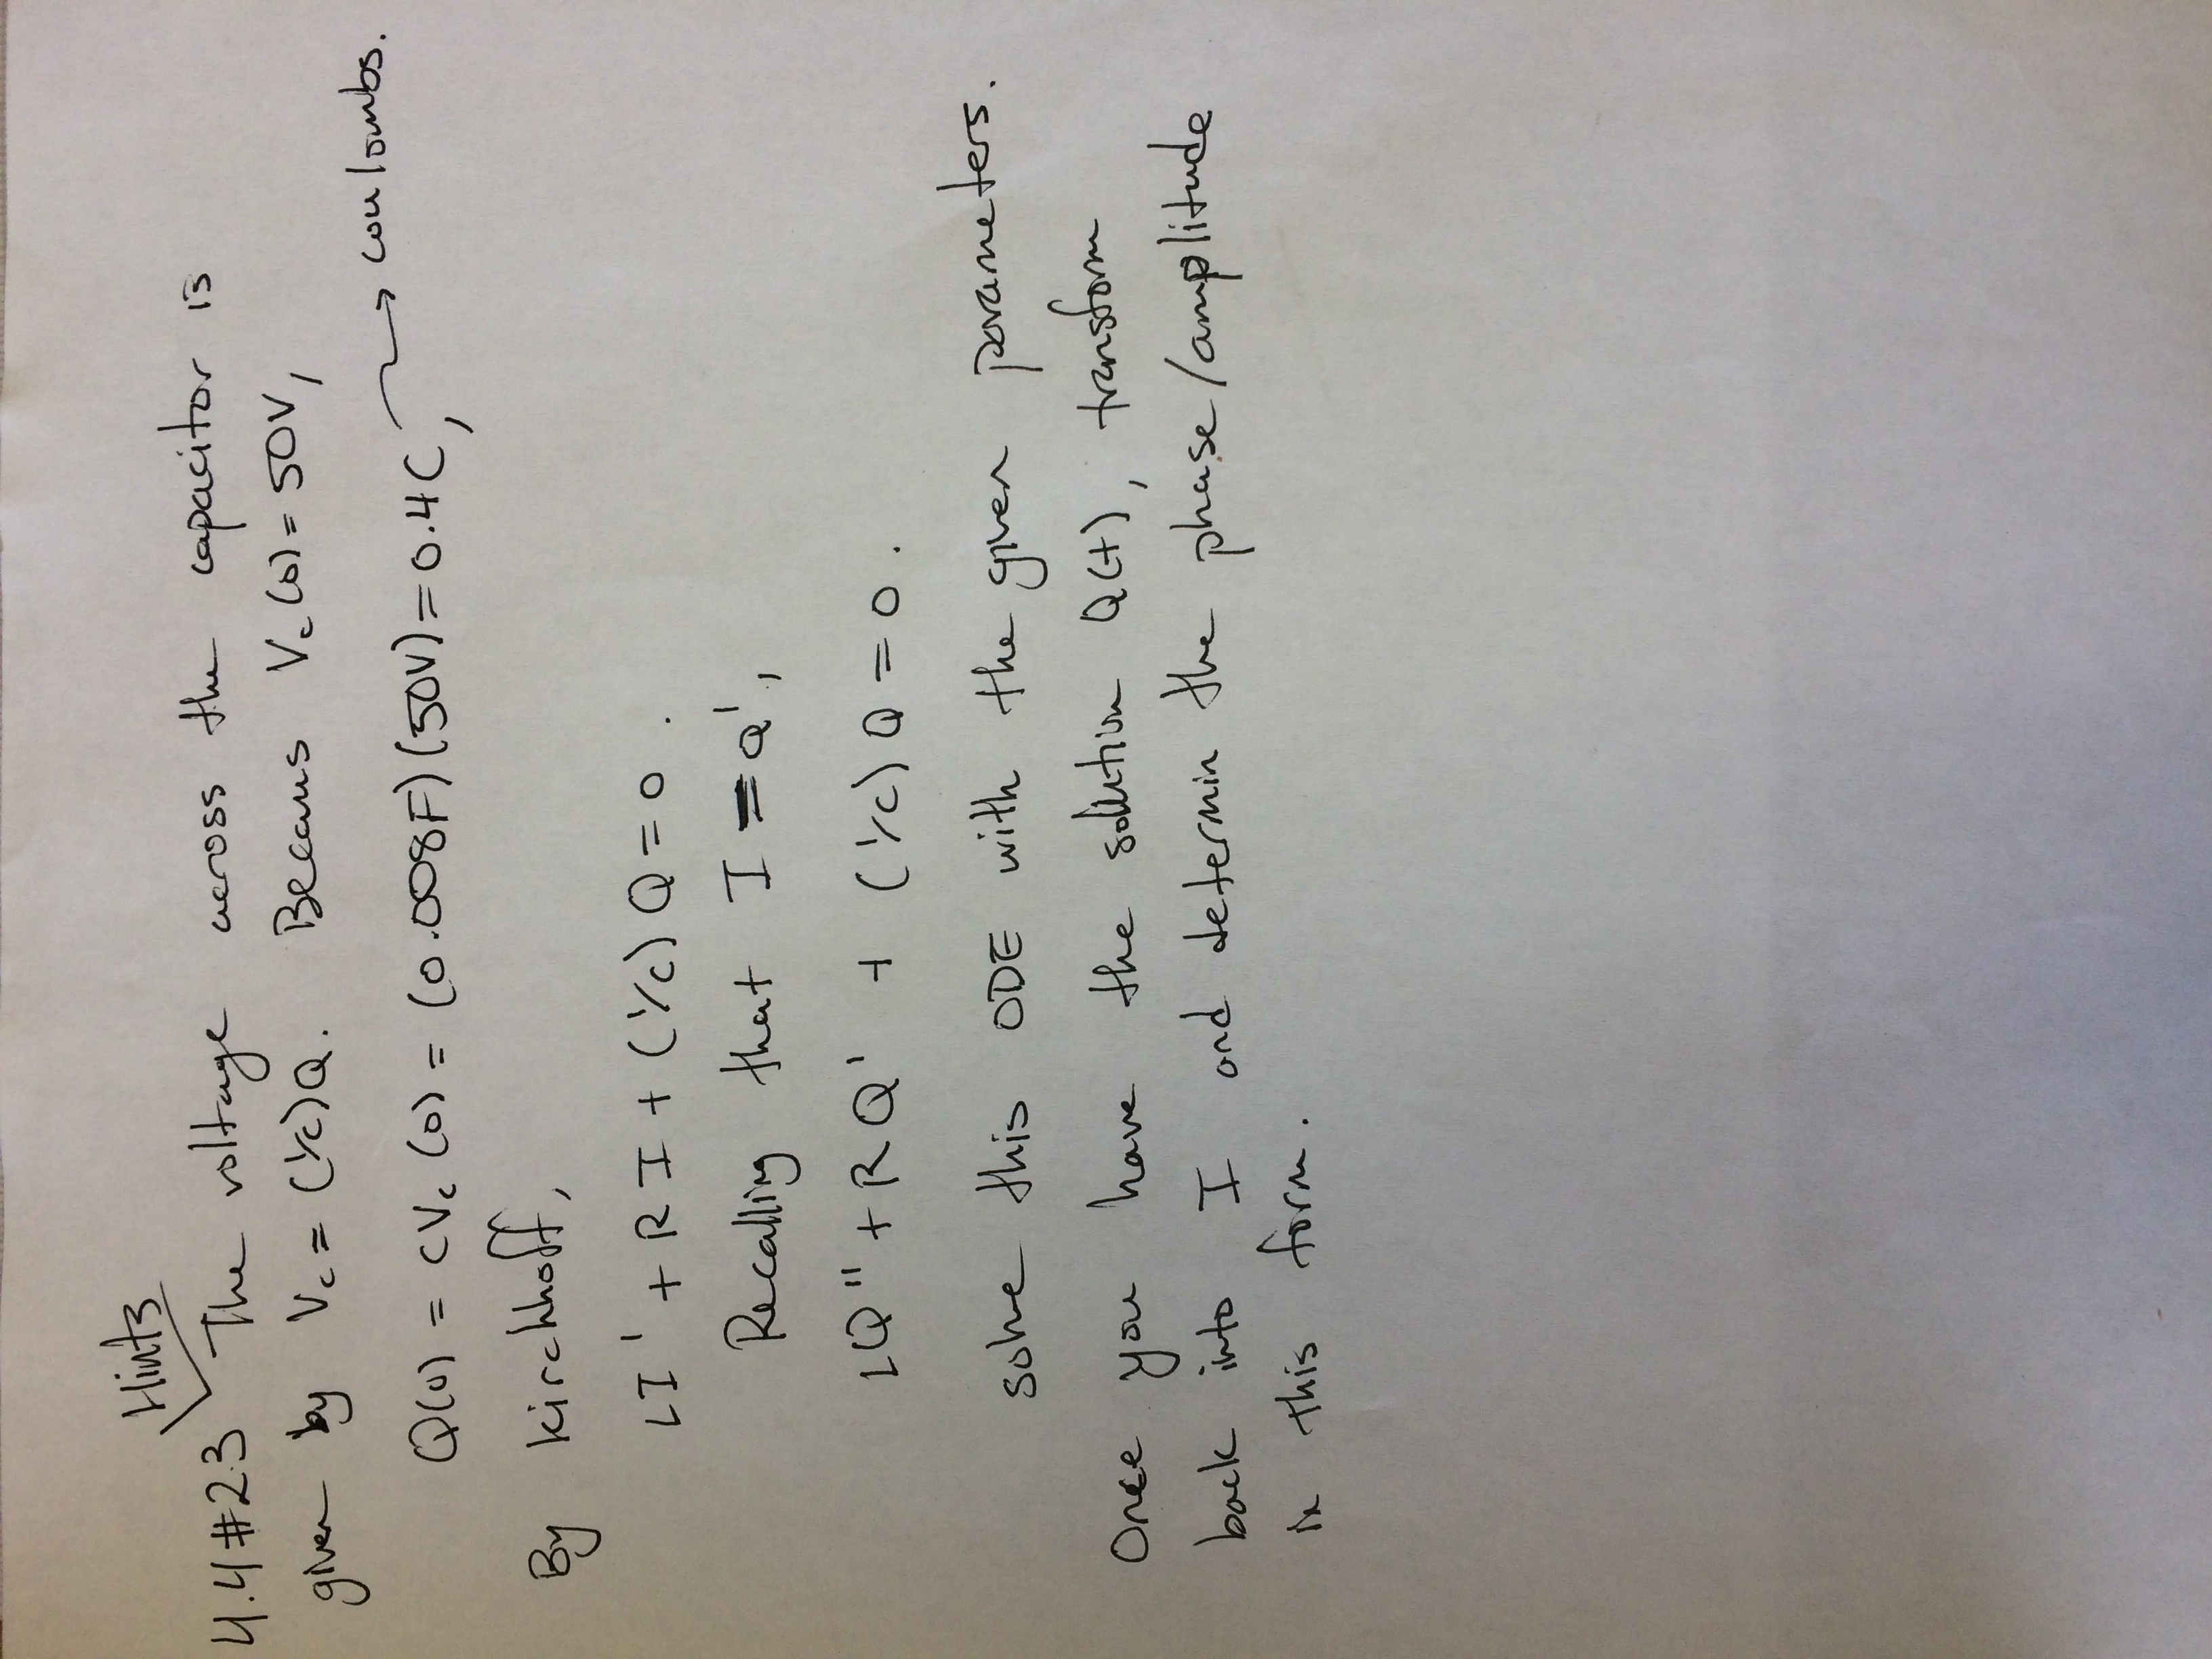 Hints
4.4#23 The voltage across the capacitor is
given by Vc = (1/c)Q. Becaus Vc(0) = 50V,
Q(0) = CVc(0) = (0.008F)(50V) = 0.4C, → coulombs.
By Kirchhoff,
LI' + RI + (1/c)Q = 0.
Recalling that I = Q',
LQ" + RQ' + (1/c)Q = 0.
solve this ODE with the given parameters.
Once you have the solution Q(t), transform
back into I and determin the phase/amplitude
in this form.